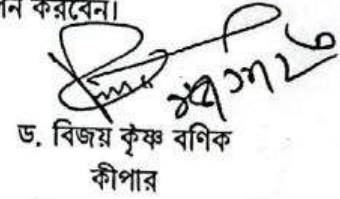 ন করবেন।
ড. বিজয় কৃষ্ণ বণিক
কীপার